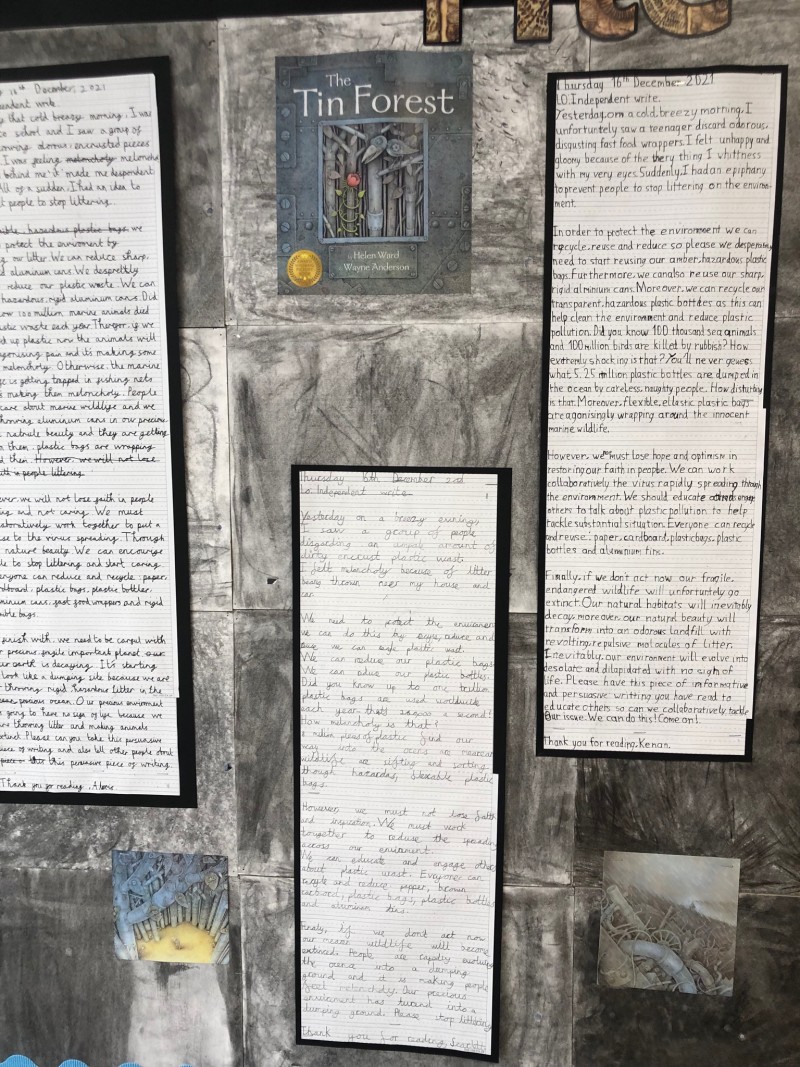 The
Tin Forest
Helen Ward
Wayne Anderson
16th December, 2021
that cold breezy morning, I was
school and I saw a group of
I was feeling melancholy
behind me it made me despondent
All of a sudden, I had an idea to
people to stop littering.
hazardous plastic bags we
protect the enviroment by
our litter. We can reduce sharp,
aluminum cans. We desprettly
reduce our plastic waste. We can
hazardous, rigid aluminum cans. Did
100 million marine animals died
plastic waste each year if we
up plastic now the animals will
pain and its making some
melancholy. Otherwise, the marine
is getting trapped in fishing nets
making them melancholy. People
care about marine wildlife and we
throwing aluminum cans in our precious
beauty and they are getting
them, plastic bags are wrapping
them. However, we will not lose
faith in people littering.
we will not lose faith in people
and not caring. We must
work together to put a
to the virus spreading. Through
nature beauty. We can encourge
to stop littering and start caring
can reduce and recycle: paper,
plastic bags, plastic bottles,
cans, fast food wrappers and rigid
bags.
with, we need to be careful with
precious, fragile important planet. our
earth is decaying. It's starting
look like a dumping site because we are
throwing rigid, hazardous litter in the
precious ocean. Our precious
going to have no sign of life because we
throwing litter and making animals
Please can you take this persuasive
piece of writing and also tell other people about
this persuasive piece of writing.
Thank you for reading, Alexie
Thursday 16th December 2021
LO: Independent write
Yesterday on a breezy
I saw a group of people
amount of
dirty encrust plastic wast.
I felt melancholy because of litter
being thrown near my house and
car.
We need to protect the
we can do this by
we can plastic wast.
We can reduce our plastic bags
We can our plastic bottles.
Did you know up to one trillion
plastic bags are used
each year that's a second!
How melancholy is that?
8 million of plastic find our
way into the ocean
wildlife are and
though hazardas, plastic
bags.
However, we must not lose faith
and inspiration. We must work
together to reduse the spreading
across our
We can educate and engage other
about plastic wast. Everyone can
recycle and reduce: papper, brown
plastic bags, plastic bottles
and
if we don't act now
our wildlife will become
People are rapidly
the ocence into a dumping
ground and it is making people
feel melancholy. Our precious
has turend into a
dumping ground. Please stop littering
Thank you for reading, Scarlett
Thursday 16th December 2021
LO: Independent write.
Yesterday, on a cold, breezy morning, I
unfortunetly saw a teenager discard odorous,
disgusting fast food wrappers. I felt unhappy and
gloomy because of the very thing I whittness
with my very eyes. Suddenly, I had an epiphany
to prevent people to stop littering on the environ-
ment.
In order to protect the environment we can
recycle, reuse and reduce so please we desperatly
need to start reusing our amber, hazardous plastic
bags. Furthermore, we can also reuse our sharp,
rigid alminium cans. Moreover, we can recycle our
transparent, hazardous plastic bottles as this can
help clean the environment and reduce plastic
pollution. Did you know 100 thousand sea animals
and 100 million birds are killed by rubbish? How
extremly shocking is that? You'll never guess
what 5.25 million plastic bottles are dumped in
the ocean by careless, naughty people. How disturbing
is that. Moreover, flexible, ellastic plastic bags
are agonisingly wrapping around the innocent
marine wildlife.
However, we must lose hope and optimism in
restoring our faith in people. We can work
collaboratively the virus rapidly spreading through
the environment. We should educate
others to talk about plastic pollution to help
tackle substantial situation. Everyone can recycle
and reuse: paper, cardboard, plastic bags, plastic
bottles and aluminium tins.
Finally, if we don't act now our fragile,
endangered wildlife will unfortuntly go
extinct. Our natural habitats will inevitably
decay moreover, our natural beauty will
transform into an odorous landfill with
revolting, repulsive molecules of litter.
Inevitably, our environment will evolve into
desolate and dilapidated with no sigh of
life. Please have this piece of imformative
and persuasive writting you have read to
educate others so can we collaboratively tackle
our issue. We can do this! Come on!
Thank you for reading, Kenan.